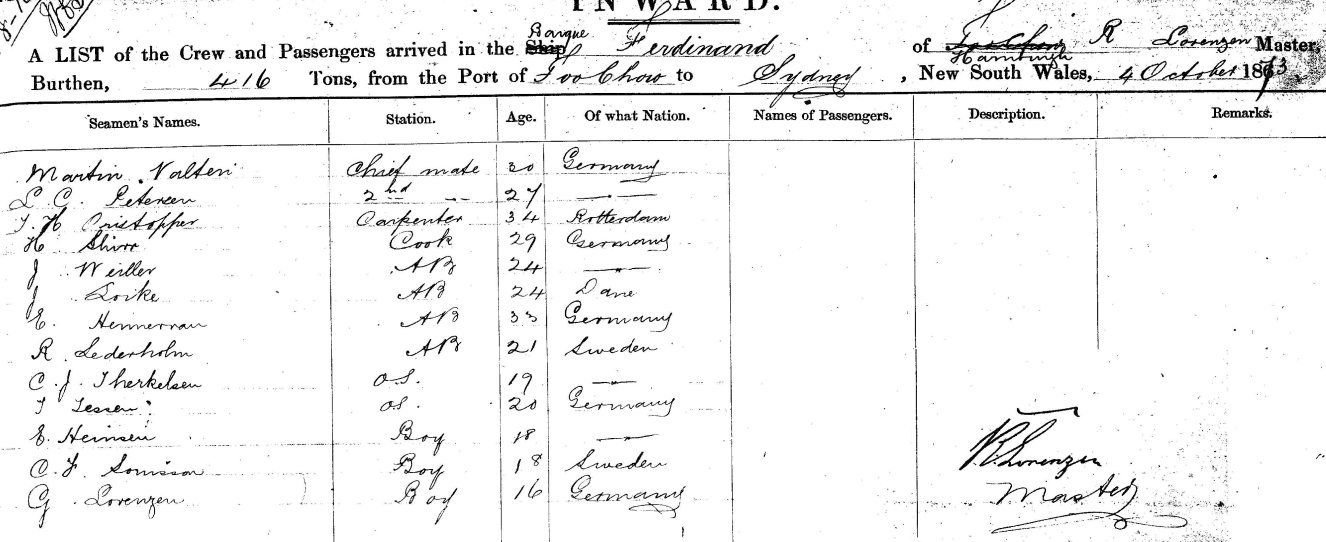 INWARD.
A LIST of the Crew and Passengers arrived in the Ship Barque Ferdinand of Hamburgh R Lorenzen Master,
Burthen, 416 Tons, from the Port of Foo Chow to Sydney, New South Wales, 4 October 1873
Seamen's Names. Station. Age. Of what Nation. Names of Passengers. Description. Remarks.
Martin Nalten Chief mate 30 Germany
L C. Petersen 2nd -- 27 —"—
J. H Cristopper Carpenter 34 Rotterdam
H Shirr Cook 29 Germany
J Weiller AB 24 —"—
J Loike AB 24 Dane
E. Hennerran AB 33 Germany
R Lederholm AB 21 Sweden
C. J. Therkelsen O.S. 19 —"—
T Tessen O.S. 20 Germany
E. Heinsen Boy 18 —"—
C. F. Boy 18 Sweden
G Lorenzen Boy 16 Germany
R. Lorenzen
Master